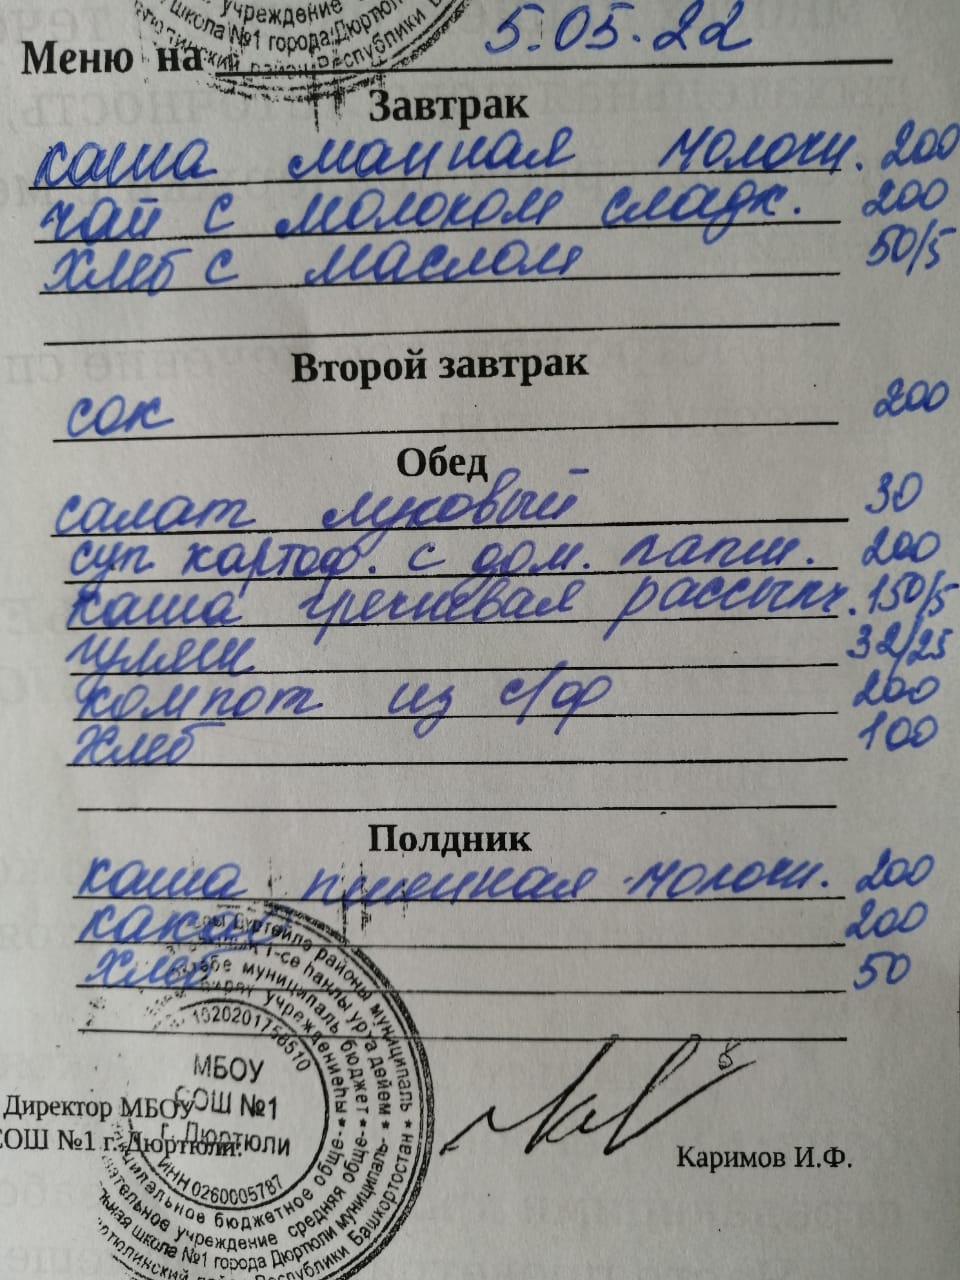 учреждение
школа №1 города Дюртюли
район Республики
Меню на 5.05.22
Завтрак
каша манная молочн. 200
чай с молоком сладк. 200
хлеб с маслом 50/5
Второй завтрак
сок 200
Обед
салат луковый 30
суп картоф. с дом. лапш. 200
каша гречневая рассыпч. 150/5
гуляш 32/25
компот из с/ф 200
хлеб 100
Полдник
каша пшенная молочн. 200
какао 200
хлеб 50
МБОУ
СОШ №1
г. Дюртюли
ИНН 0260005787
Директор МБОУ
СОШ №1 г. Дюртюли:
Каримов И.Ф.
районы муниципаль
муниципаль бюджет
учреждениеһы
муниципальное бюджетное обще-
учреждение средняя обще-
школа №1 города Дюртюли муниципаль-
район Республики Башкортостан